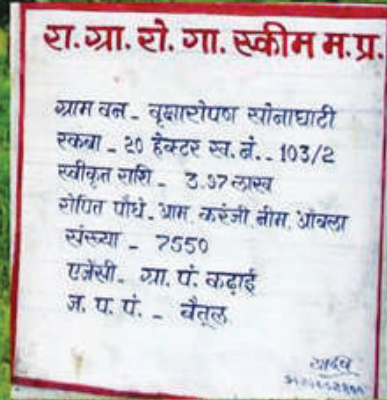 रा. ग्रा. रो. गा. स्कीम म.प्र.
ग्राम वन - वृक्षारोपण सोनाघाटी
रकबा - 20 हेक्टर ख. नं. - 103/2
स्वीकृत राशि - 3.97 लाख
रोपित पौधे - आम, करंजी, नीम, आंवला
संख्या - 7550
एजेंसी - ग्रा. पं. कढ़ाई
ज. प. पं. - बैतूल
यादव